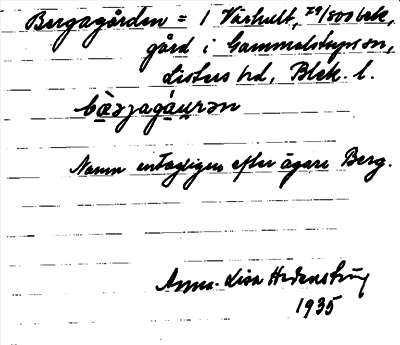 Bergagården = 1 Vårhult, 29/800 bek,
gård i Gammelstorps sn,
Listers hd, Blek. l.
bæ̀rjagáuṛən
Namn entagligen efter ägare Berg.
Anna-Lisa Hedenskug
1935